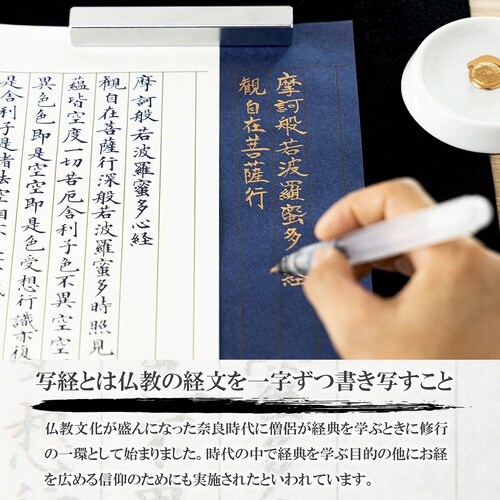 摩訶般若波羅蜜多 経
観自在菩薩行
摩訶般若波羅蜜多心経
観自在菩薩行深般若波羅蜜多時照見
蘊皆空度一切苦厄舎利子色不異空空
異色色即是空空即是色受想行識亦復
是舎利子是諸法空相不
写経とは仏教の経文を一字ずつ書き写すこと
仏教文化が盛んになった奈良時代に僧侶が経典を学ぶときに修行
の一環として始まりました。時代の中で経典を学ぶ目的の他にお経
を広める信仰のためにも実施されたといわれています。